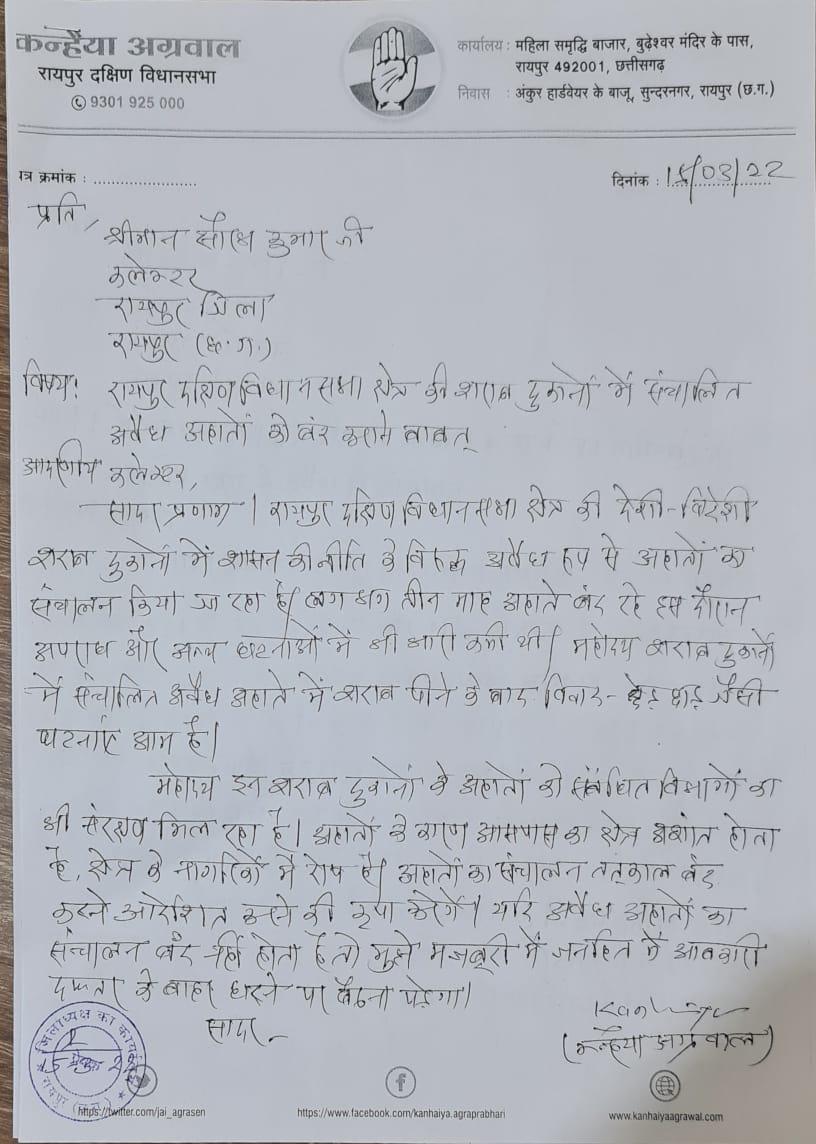 कन्हैया अग्रवाल
रायपुर दक्षिण विधानसभा
9301 925 000
कार्यालय : महिला समृद्धि बाजार, बुढ़ेश्वर मंदिर के पास,
रायपुर 492001, छत्तीसगढ़
निवास : अंकुर हार्डवेयर के बाजू, सुन्दरनगर, रायपुर (छ.ग.)
त्र क्रमांक : ........................
दिनांक : 15/03/22
प्रति,
श्रीमान सौरभ कुमार जी
कलेक्टर
रायपुर जिला
रायपुर (छ.ग.)
विषय: रायपुर दक्षिण विधानसभा क्षेत्र की शराब दुकानों में संचालित
अवैध अहातों को बंद कराने बाबत्
आदरणीय कलेक्टर,
सादर प्रणाम । रायपुर दक्षिण विधानसभा क्षेत्र की देशी-विदेशी
शराब दुकानों में शासन की नीति के विरुद्ध अवैध रूप से अहातों का
संचालन किया जा रहा है। लगभग तीन माह अहाते बंद रहे इस दौरान
अपराध और अन्य घटनाओं में भी भारी कमी थी। महोदय शराब दुकानों
में संचालित अवैध अहाते में शराब पीने के बाद विवाद - छेड़छाड़ जैसी
घटनाएं आम है।
महोदय इन शराब दुकानों के अहातों को संबंधित विभागों का
भी संरक्षण मिल रहा है। अहातों के कारण आसपास का क्षेत्र अशांत होता
है, क्षेत्र के नागरिकों में रोष है। अहातों का संचालन तत्काल बंद
करने आदेशित करने की कृपा करेंगे। यदि अवैध अहातों का
संचालन बंद नहीं होता है तो मुझे मजबूरी में जनहित में आबकारी
दफ्तर के बाहर धरने पर बैठना पड़ेगा।
सादर -
(कन्हैया अग्रवाल)
जिलाध्यक्ष का कार्यालय
रायपुर (छ.ग.)
https://twitter.com/jai_agrasen
https://www.facebook.com/kanhaiya.agraprabhari
www.kanhaiyaagrawal.com